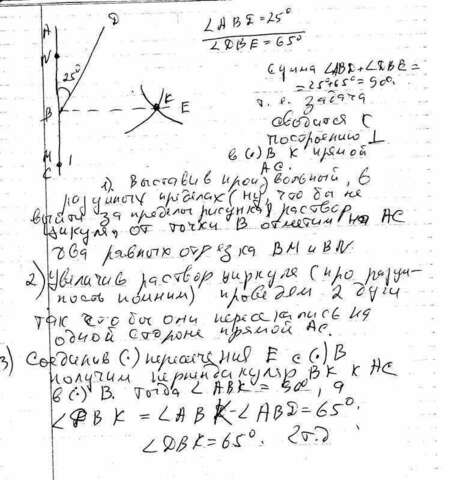 A
D
N
25°
B
K
E
M
1
C
∠ABD = 25°
∠DBE = 65°
Сумма ∠ABD+∠DBE =
= 25°+65° = 90°.
т. е. задача
сводится к
построению ⊥
в (.) B к прямой
AC.
1). Выставив произвольный, в
разумных пределах (ну, что бы не
выйти за пределы рисунка) раствор
циркуля, от точки B отметим на AC
два равных отрезка BM и BN.
2) Увеличив раствор циркуля (про разум-
ность помним) проведем 2 дуги
так что бы они пересекались на
одной стороне прямой AC.
3) Соединив (.) пересечения E с (.) B
получим перпендикуляр BK к AC
в (.) B. Тогда ∠ABK = 90°, а
∠DBK = ∠ABK-∠ABD = 65°.
∠DBK = 65°. Чт.д